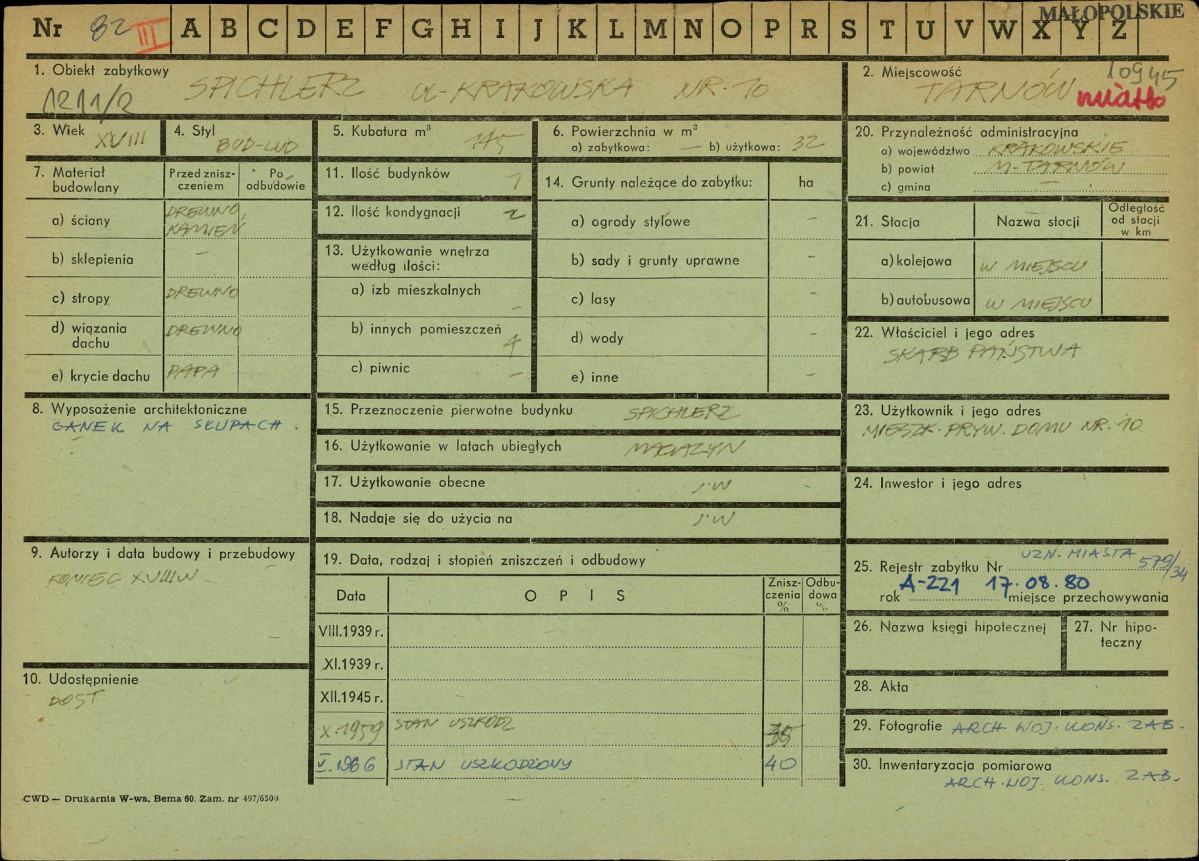 Nr 82 III A B C D E F G H I J K L M N O P R S T U V W X Y Z MAŁOPOLSKIE
1. Obiekt zabytkowy SPICHLERZ UL. KRAKOWSKA NR. 10
1211/2
2. Miejscowość TARNÓW 10945
miasto
3. Wiek XVIII
4. Styl BUD-LUD
5. Kubatura m³ 175
6. Powierzchnia w m²
a) zabytkowa: — b) użytkowa: 32
7. Materiał budowlany
Przed znisz-czeniem
Po odbudowie
a) ściany DREWNO, KAMIEŃ
b) sklepienia -
c) stropy DREWNO
d) wiązania dachu DREWNO
e) krycie dachu PAPA
8. Wyposażenie architektoniczne
GANEK NA SŁUPACH.
9. Autorzy i data budowy i przebudowy
KONIEC XVIIIW
10. Udostępnienie
DOST
11. Ilość budynków 1
12. Ilość kondygnacji 2
13. Użytkowanie wnętrza według ilości:
a) izb mieszkalnych -
b) innych pomieszczeń 4
c) piwnic -
14. Grunty należące do zabytku: ha
a) ogrody stylowe -
b) sady i grunty uprawne -
c) lasy -
d) wody -
e) inne -
15. Przeznaczenie pierwotne budynku SPICHLERZ
16. Użytkowanie w latach ubiegłych MAGAZYN
17. Użytkowanie obecne J.W
18. Nadaje się do użycia na J.W
19. Data, rodzaj i stopień zniszczeń i odbudowy
Data OPIS Znisz-czenia % Odbu-dowa %
VIII.1939 r.
XI.1939 r.
XII.1945 r.
X.1959 STAN USZKODZ 35
V.1966 STAN USZKODZONY 40
20. Przynależność administracyjna
a) województwo KRAKOWSKIE
b) powiat M-TARNÓW
c) gmina —
21. Stacja Nazwa stacji Odległość od stacji w km
a) kolejowa W MIEJSCU
b) autobusowa W MIEJSCU
22. Właściciel i jego adres
SKARB PAŃSTWA
23. Użytkownik i jego adres
MIESZK. PRYW. DOMU NR. 10
24. Inwestor i jego adres
25. Rejestr zabytku Nr UZN. MIASTA 579/34
rok A-221 17.08.80 miejsce przechowywania
26. Nazwa księgi hipotecznej
27. Nr hipo-teczny
28. Akta
29. Fotografie ARCH WOJ. KONS. ZAB.
30. Inwentaryzacja pomiarowa
ARCH. WOJ. KONS. ZAB.
CWD — Drukarnia W-wa, Bema 60. Zam. nr 497/6500